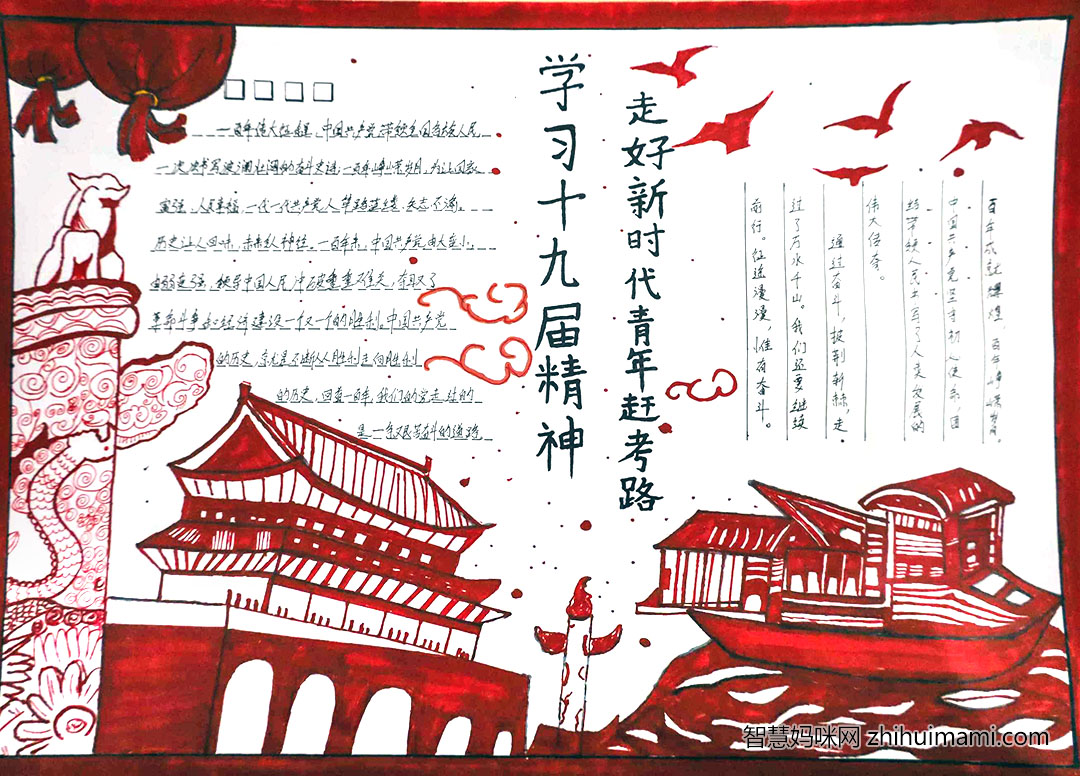 学习十九届精神
走好新时代青年赶考路
一百年伟大征途，中国共产党带领全国各族人民
一次次书写波澜壮阔的奋斗史诗，一百年峥嵘岁月，为让国家
富强，人民幸福，一代一代共产党人筚路蓝缕，矢志不渝。
历史让人回味，未来让人神往。一百年来，中国共产党由小至大，
由弱变强，领导中国人民冲破重重难关，夺取了
革命斗争和经济建设一个又一个的胜利。中国共产党
的历史，亦就是不断从胜利走向胜利
的历史，回首一百年，我们的党走过的
是一条艰苦奋斗的道路
百年成就辉煌，百年峥嵘岁。
中国共产党坚守初心使命，团
结带领人民书写了人类发展的
伟大传奇。
通过奋斗，披荆斩棘，走
过了万水千山。我们还要继续
前行。征途漫漫，惟有奋斗。
智慧妈咪网 zhihuimami.com